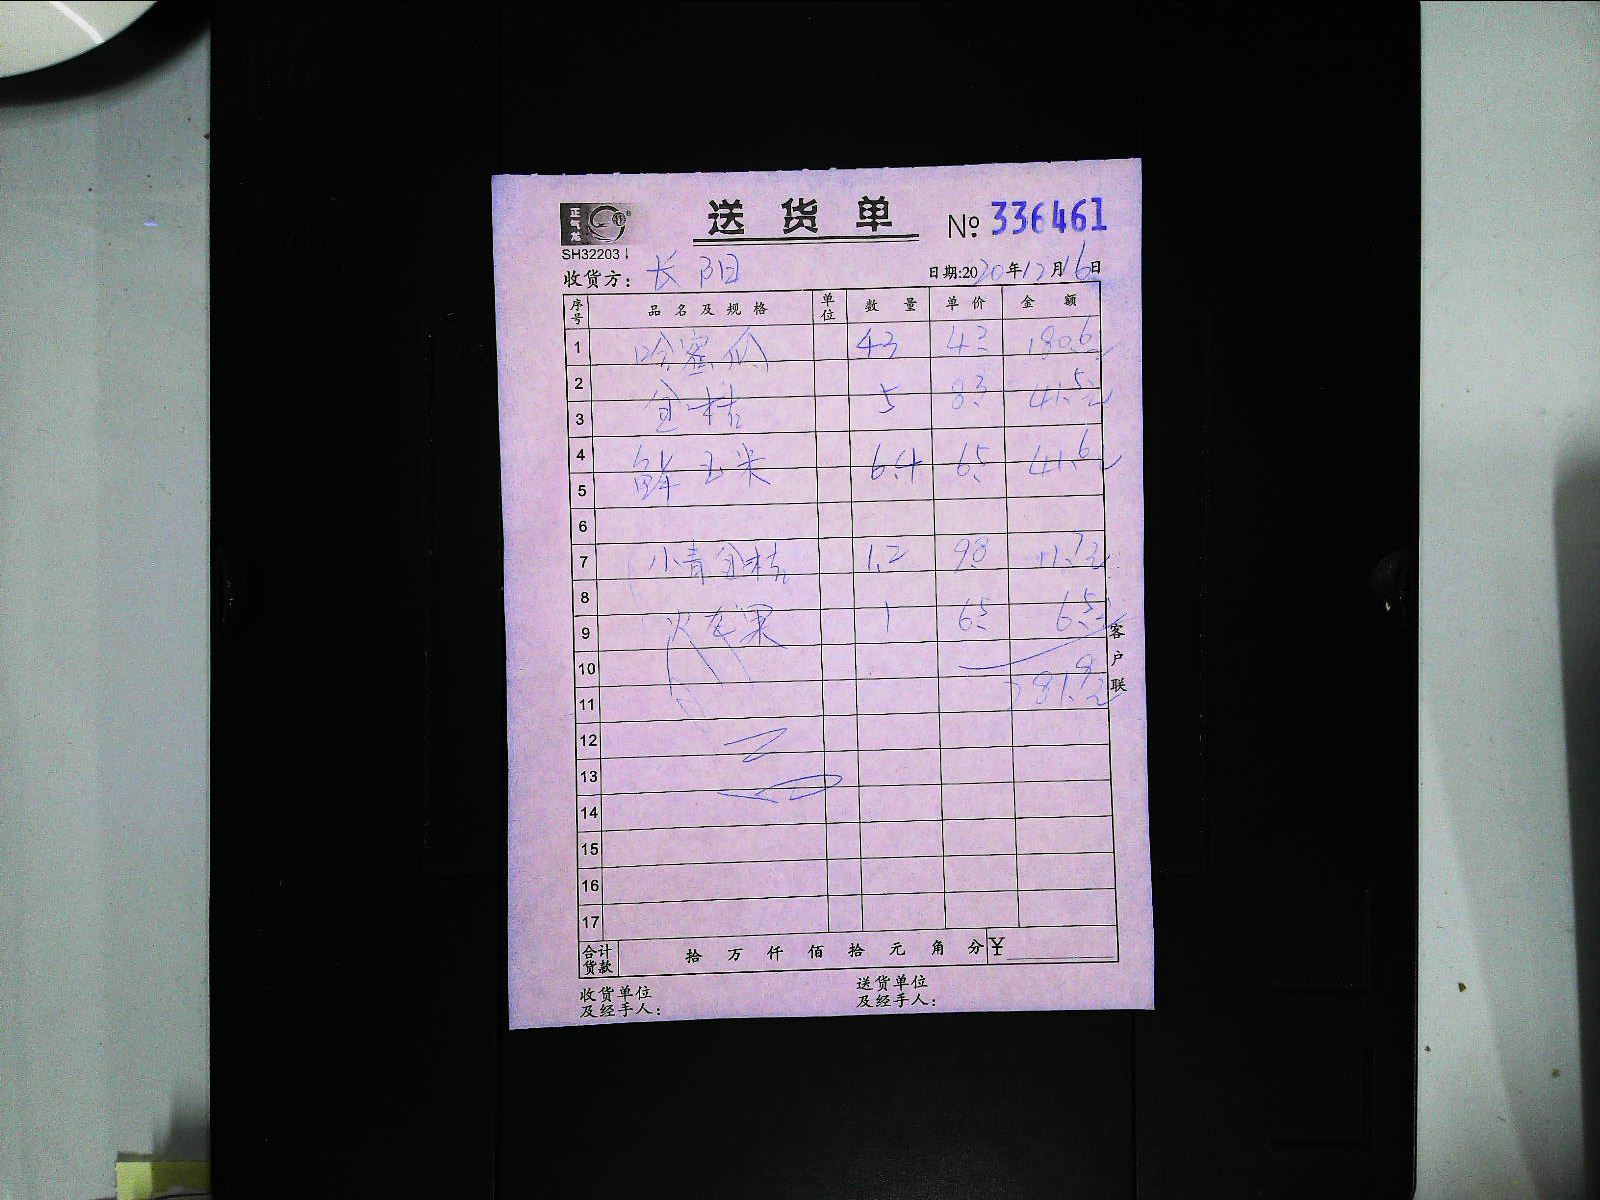 正气龙
送货单
№ 336461
SH32203
收货方： 长阳
日期:2020年12月16日
序号 品名及规格 单位 数量 单价 金额
1 哈蜜瓜 43 4.2 180.6元
2
3 金桔 5 8.3 41.5元
4
5 鲜玉米 6.4 6.5 41.6元
6
7 小青金桔 1.2 9.8 11.7元
8
9 火龙果 1 6.5 6.5元
10
11 281.9元
12
13
14
15
16
17
客户联
合计货款 拾万仟佰拾元角分 ¥
收货单位及经手人：
送货单位及经手人：